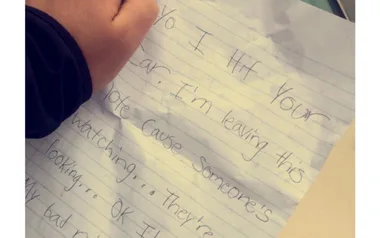 Yo I Hit Your
Car. I'm leaving this
Note Cause Someone's
watching... They're
looking... OK I
My bad